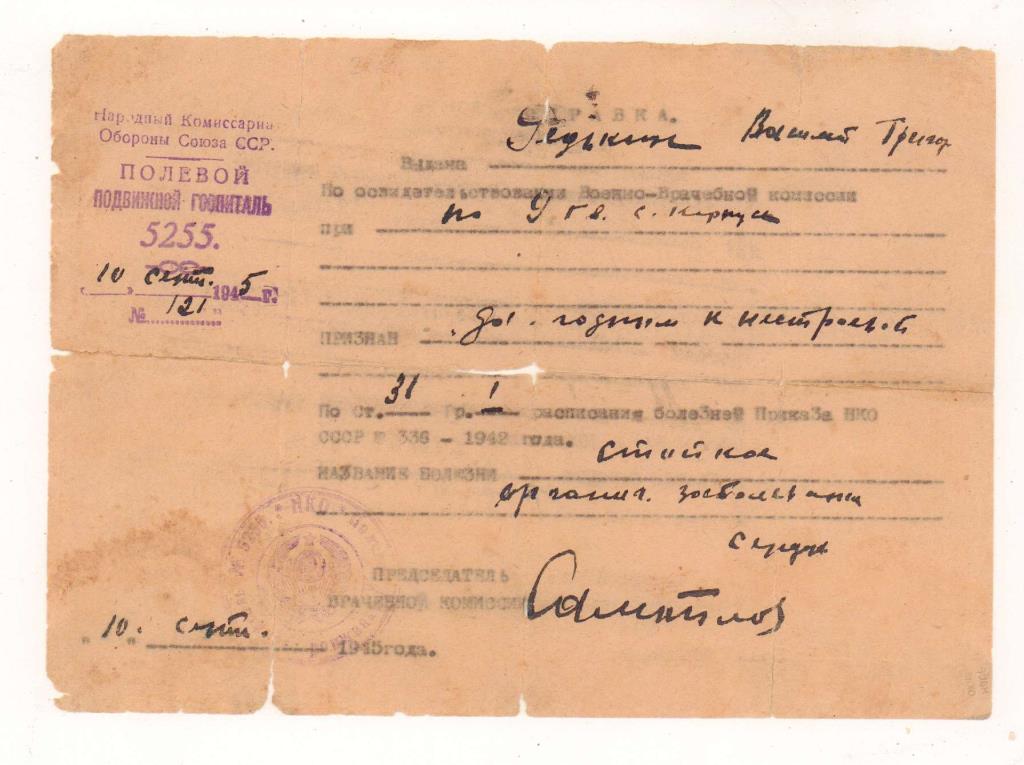 Народный Комиссариа
Обороны Союза ССР.
ПОЛЕВОЙ
ПОДВИЖНОЙ ГОСПИТАЛЬ
5255.
"10" сент. 1945 г.
№ 121
СПРАВКА.
Выдана Редькин Василий Григор
По освидетельствовании Военно-Врачебной комиссии
при по 9 гв. с. корпуса
ПРИЗНАН годным к нестроевой
По Ст. 31 Гр. 1 расписания болезней Приказа НКО
СССР № 336 - 1942 года.
НАЗВАНИЕ БОЛЕЗНИ стойкое
органич. заболевание
сердца
ПРЕДСЕДАТЕЛЬ
ВРАЧЕБНОЙ КОМИССИИ Самойлов
"10." сент. 1945года.
НКО